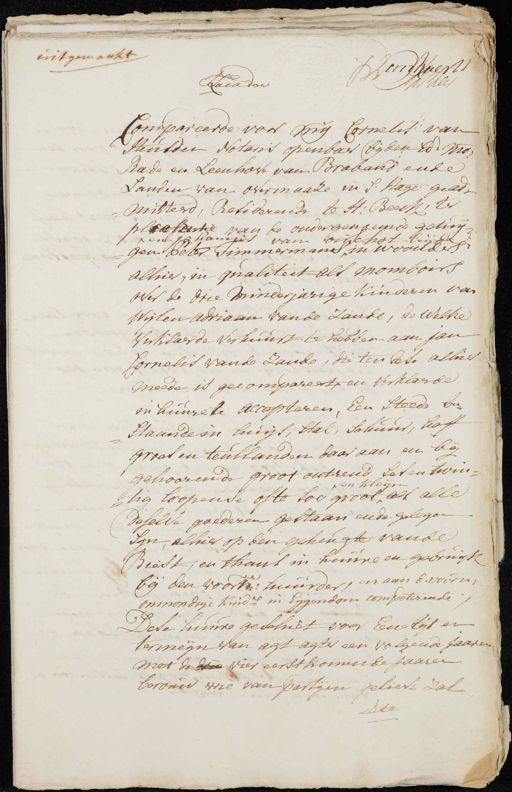 uitgemaakt
Compareerde voor mij Cornelis van
Mulden Notaris openbaar bij den Ed: Mo:
Rade en Leenhove van Braband ende
Landen van overmaaze in S Hage gead-
mitteerd, Resideerende te H. Beeck, ter
van de ondergenoemde getuij-
van
gen Peter Timmermans, in
alhier, in qualiteit als momboirs
over de drie minderjarige kinderen van
Wijlen adriaan vande Zande, de welke
verklaarde verhuurt te hebben aan jan
Cornelis vande Zande, de ten deze alhier
meede is gecompareert en verklaarde
in huure te accepteren, Een Steede be-
staande in huijs, stal, schuur, hoff
groes en teullanden daar aan en bij
gehoorende groot ontrend seven twin-
tig loopense ofte soo groot en kleijn als alle
deselve goederen gestaan ende gelegen
sijn, alhier op den vande
Beest, en thans in huure en gebruijk
bij den voors: huurder, en aan de voorn:
onmondige kinds in Eijgendom competeerende,
Dese huure geschiet voor Een tijt en
termeijn van agt agter een volgende jaaren
met de vier eerstkomende jaaren
berouw wie van partijen gelieve zal